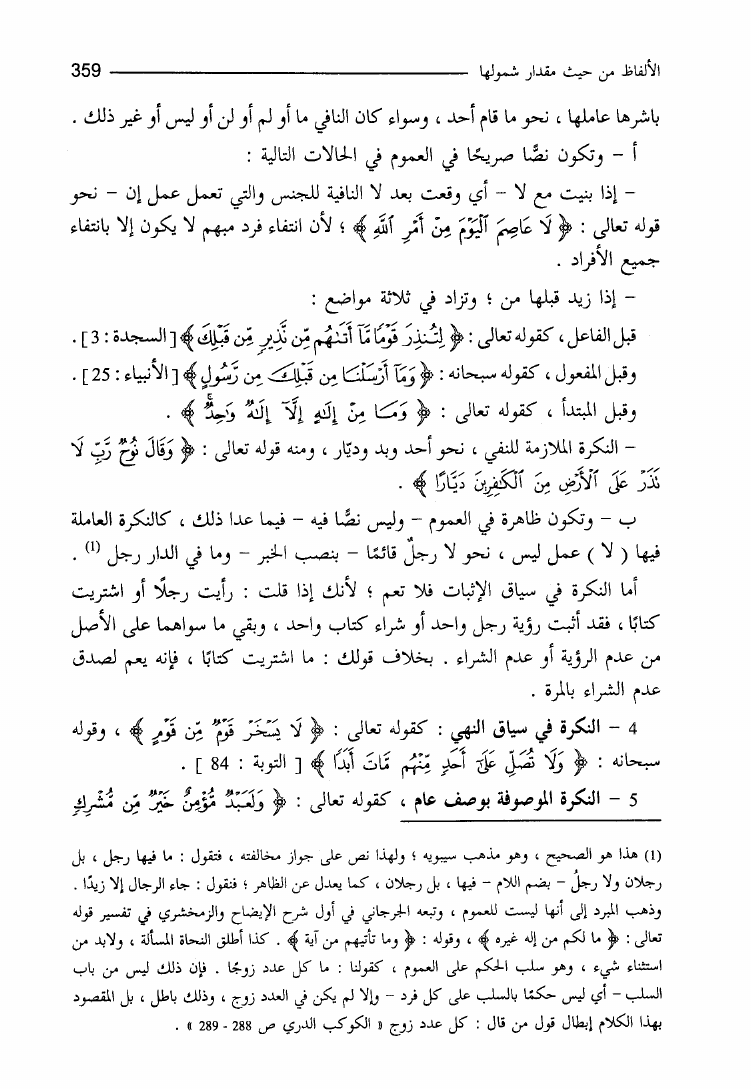 الألفاظ من حيث مقدار شمولها ـــــــــــــــــــــــــــــ 359
باشرها عاملها ، نحو ما قام أحد ، وسواء كان النافي ما أو لم أو لن أو ليس أو غير ذلك .
أ – وتكون نصًّا صريحًا في العموم في الحالات التالية :
– إذا بنيت مع لا – أي وقعت بعد لا النافية للجنس والتي تعمل عمل إن – نحو
قوله تعالى : ﴿ لَا عَاصِمَ ٱلْيَوْمَ مِنْ أَمْرِ ٱللَّهِ ﴾ ؛ لأن انتفاء فرد مبهم لا يكون إلا بانتفاء
جميع الأفراد .
– إذا زيد قبلها من ؛ وتزاد في ثلاثة مواضع :
قبل الفاعل ، كقوله تعالى : ﴿ لِتُنذِرَ قَوْمًا مَّآ أَتَىٰهُم مِّن نَّذِيرٍ مِّن قَبْلِكَ ﴾ [ السجدة : 3 ] .
وقبل المفعول ، كقوله سبحانه : ﴿ وَمَآ أَرْسَلْنَا مِن قَبْلِكَ مِن رَّسُولٍ ﴾ [ الأنبياء : 25 ] .
وقبل المبتدأ ، كقوله تعالى : ﴿ وَمَا مِنْ إِلَٰهٍ إِلَّآ إِلَٰهٌ وَٰحِدٌۚ ﴾ .
– النكرة الملازمة للنفي ، نحو أحد وبد وديّار ، ومنه قوله تعالى : ﴿ وَقَالَ نُوحٌ رَّبِّ لَا
تَذَرْ عَلَى ٱلْأَرْضِ مِنَ ٱلْكَٰفِرِينَ دَيَّارًا ﴾ .
ب – وتكون ظاهرة في العموم – وليس نصًّا فيه – فيما عدا ذلك ، كالنكرة العاملة
فيها ( لا ) عمل ليس ، نحو لا رجلٌ قائمًا – بنصب الخبر – وما في الدار رجل (1) .
أما النكرة في سياق الإثبات فلا تعم ؛ لأنك إذا قلت : رأيت رجلًا أو اشتريت
كتابًا ، فقد أثبت رؤية رجل واحد أو شراء كتاب واحد ، وبقي ما سواهما على الأصل
من عدم الرؤية أو عدم الشراء . بخلاف قولك : ما اشتريت كتابًا ، فإنه يعم لصدق
عدم الشراء بالمرة .
4 – النكرة في سياق النهي : كقوله تعالى : ﴿ لَا يَسْخَرْ قَوْمٌ مِّن قَوْمٍ ﴾ ، وقوله
سبحانه : ﴿ وَلَا تُصَلِّ عَلَىٰٓ أَحَدٍ مِّنْهُم مَّاتَ أَبَدًا ﴾ [ التوبة : 84 ] .
5 – النكرة الموصوفة بوصف عام ، كقوله تعالى : ﴿ وَلَعَبْدٌ مُّؤْمِنٌ خَيْرٌ مِّن مُّشْرِكٍ
(1) هذا هو الصحيح ، وهو مذهب سيبويه ؛ ولهذا نص على جواز مخالفته ، فتقول : ما فيها رجل ، بل
رجلان ولا رجلُ – بضم اللام – فيها ، بل رجلان ، كما يعدل عن الظاهر ؛ فنقول : جاء الرجال إلا زيدًا .
وذهب المبرد إلى أنها ليست للعموم ، وتبعه الجرجاني في أول شرح الإيضاح والزمخشري في تفسير قوله
تعالى : ﴿ ما لكم من إله غيره ﴾ ، وقوله : ﴿ وما تأتيهم من آية ﴾ . كذا أطلق النحاة المسألة ، ولابد من
استثناء شيء ، وهو سلب الحكم على العموم ، كقولنا : ما كل عدد زوجًا . فإن ذلك ليس من باب
السلب – أي ليس حكمًا بالسلب على كل فرد – وإلا لم يكن في العدد زوج ، وذلك باطل ، بل المقصود
بهذا الكلام إبطال قول من قال : كل عدد زوج « الكوكب الدري ص 288 - 289 » .